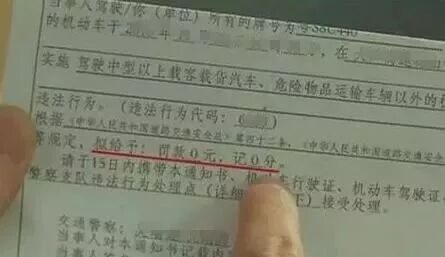 当事人驾驶/你（单位）所有的牌号为
的机动车于 年 月 日 ，在
实施 驾驶中型以上载客载货汽车、危险物品运输车辆以外的
违法行为。（违法行为代码：6
根据《中华人民共和国道路交通安全法》第四十二条，《中华人民共和国道路交通安全
等规定，拟给予：罚款0元，记0分。
请于15日内携带本通知书、机 车行驶证、机动车驾驶证
警察支队违法行为处理点（详细 下）接受处理。
交通警察：
当事人对本通知书